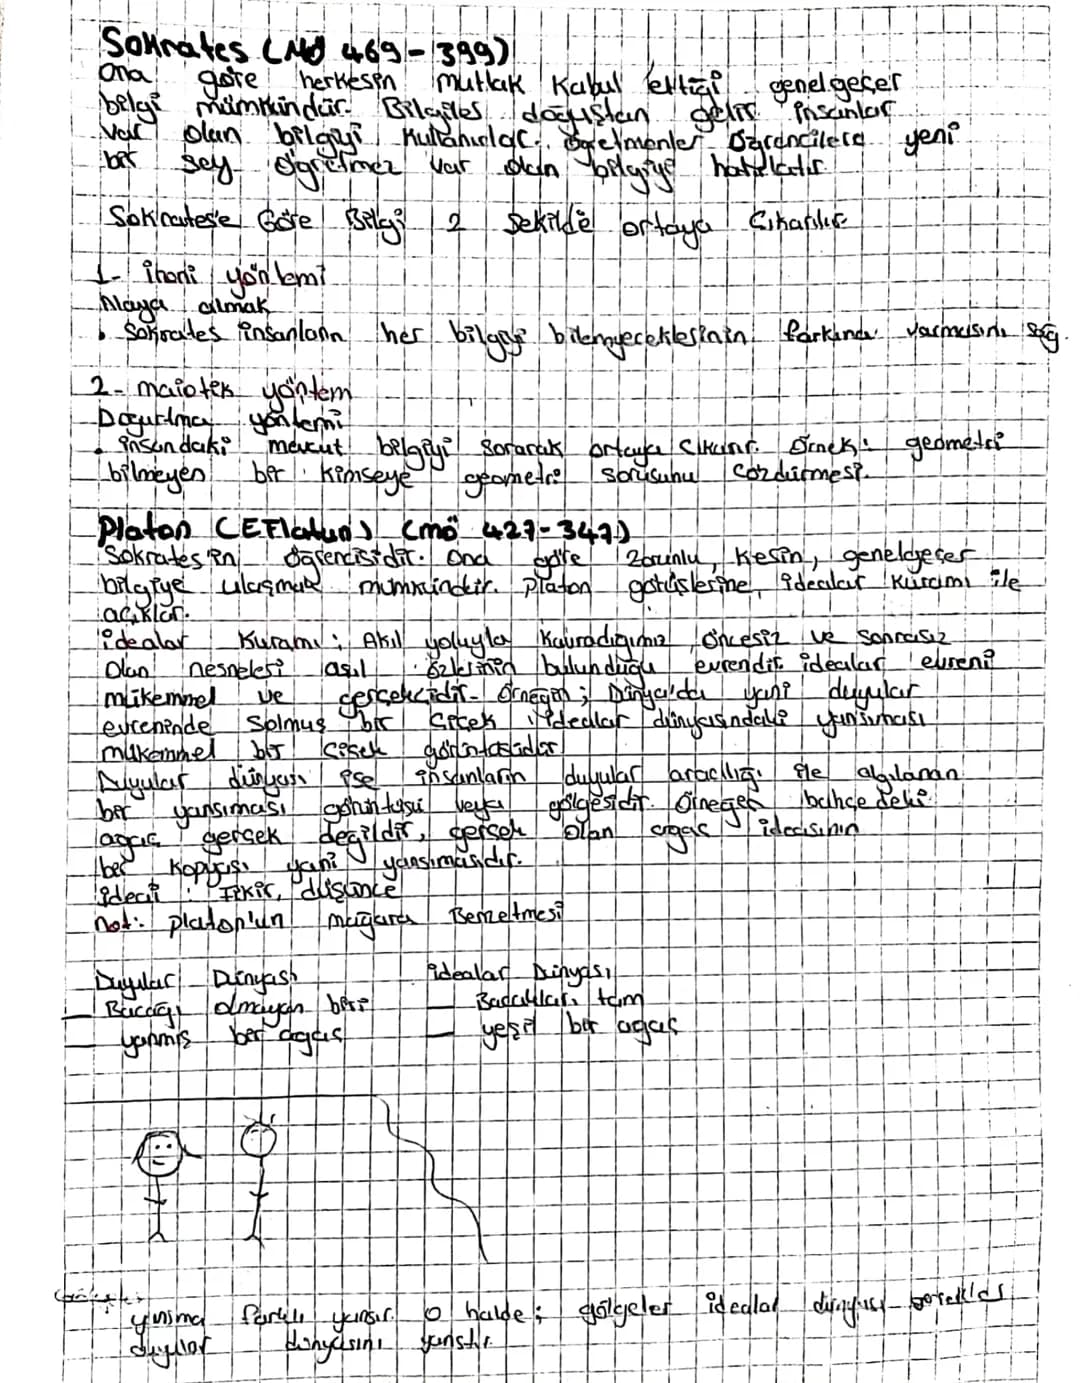 Sokrates (MÖ 469-399)
Ona göre herkesin mutlak Kabul ettiği genelgeçer
bilgi mümkündür. Bilgiler doğuştan gelir insanlar
var olan bilgiyi kullanırlar. öğretmenler öğrencilere yeni
bir şey öğretmez var olan bilgiyi hatırlatır.
Sokrates'e Göre Bilgi 2 şekilde ortaya Çıkarılır
1- ironi yöntemi
Alaya almak
• Sokrates insanların her bilgiyi bilemeyeceklerinin farkına varmasını sağ.
2- maiotek yöntem
Doğurtma yöntemi
• insandaki mevcut bilgiyi sorarak ortaya çıkarır. Örnek: geometri
bilmeyen bir kimseye geometri sorusunu çözdürmesi.
Platon (EFlatun) (mö 427-347)
Sokrates'in öğrencisidir. Ona göre zorunlu, kesin, genelgeçer
bilgiye ulaşmak mümkündür. Platon görüşlerine, idealar kuramı ile
açıklar.
idealar Kuramı: Akıl yoluyla Kavradığımız, öncesiz ve sonrasız
olan nesneleri asıl özlerinin bulunduğu evrendir idealar evreni
mükemmel ve gerçekcidir. Örneğin; Dünya'da yani duyular
evreninde Solmuş bir Çiçek idealar dünyasındaki yansıması
mükemmel bir çiçek görüntüsüdür
Duyular dünyası ise insanların duyular aracılığı ile algılanan
bir yansıması görüntüsü veya gölgesidir. Örneğer bahçedeki
ağaç gerçek değildir, gerçek olan ağaç ideasının
bir kopyası yani yansımasıdır.
idea : Fikir, düşünce
not: platon'un mağara Benzetmesi
Duyular Dünyası idealar Dünyası
— Bacağı olmayan biri — Bacakları tam
— yanmış bir ağaç — yeşil bir ağaç
farklı yansır. O halde; gölgeler idealar dünyası
duyular dünyasını yansıtır.